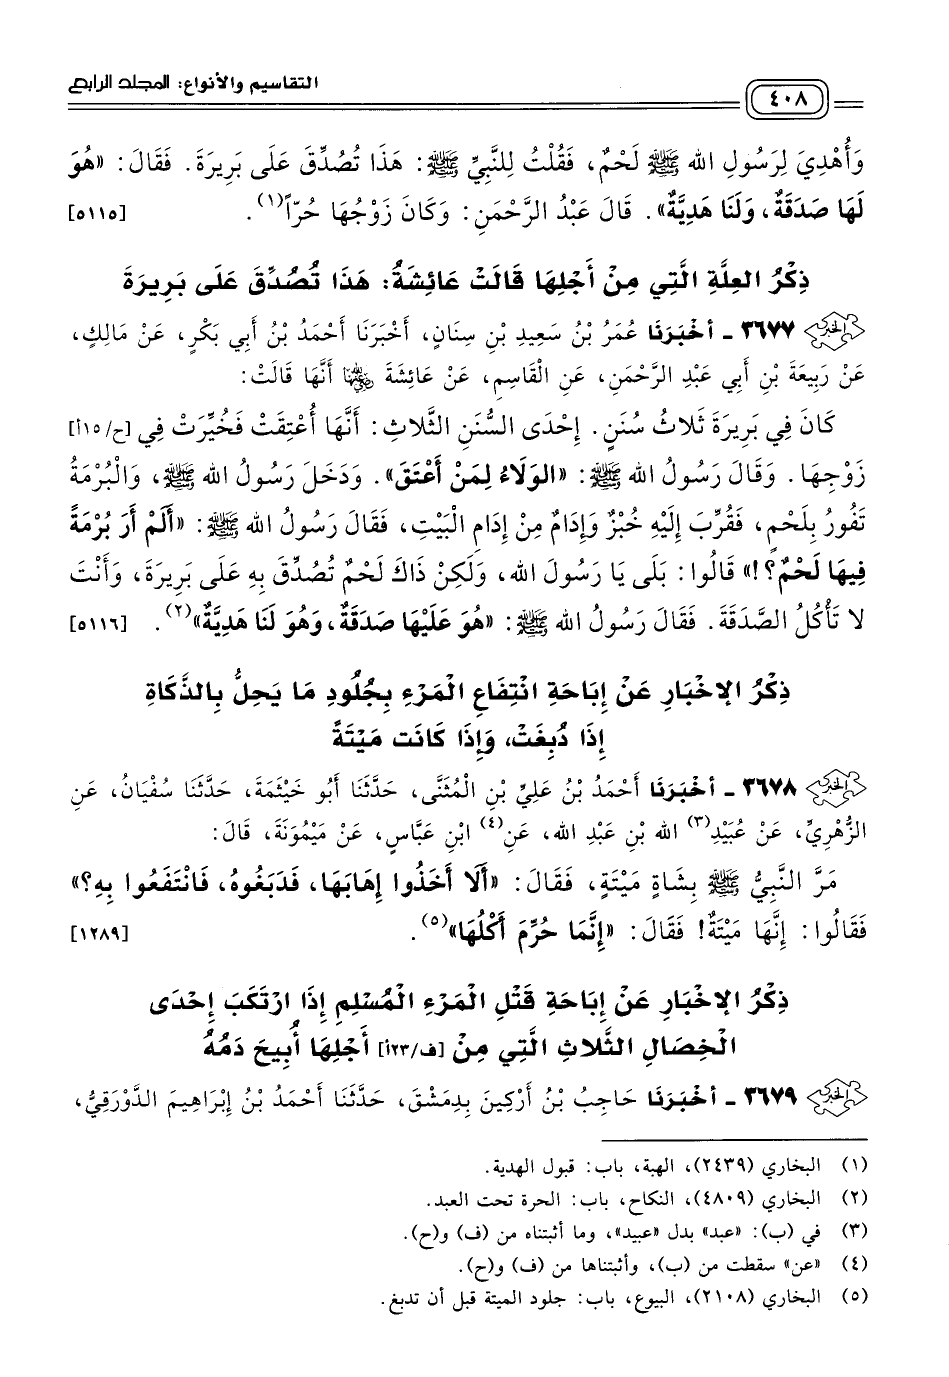 ٤٠٨
التقاسيم والأنواع: المجلد الرابع
وَأُهْدِيَ لِرَسُولِ الله ﷺ لَحْمٌ، فَقُلْتُ لِلنَّبِيِّ ﷺ: هَذَا تُصُدِّقَ عَلَى بَرِيرَةَ. فَقَالَ: «هُوَ
لَهَا صَدَقَةٌ، وَلَنَا هَدِيَّةٌ». قَالَ عَبْدُ الرَّحْمَنِ: وَكَانَ زَوْجُهَا حُرّاً(١). [٥١١٥]
ذِكْرُ العِلَّةِ الَّتِي مِنْ أَجْلِهَا قَالَتْ عَائِشَةُ: هَذَا تُصُدِّقَ عَلَى بَرِيرَةَ
٣٦٧٧ - أَخْبَرَنَا عُمَرُ بْنُ سَعِيدِ بْنِ سِنَانٍ، أَخْبَرَنَا أَحْمَدُ بْنُ أَبِي بَكْرٍ، عَنْ مَالِكٍ،
عَنْ رَبِيعَةَ بْنِ أَبِي عَبْدِ الرَّحْمَنِ، عَنِ الْقَاسِمِ، عَنْ عَائِشَةَ رضي الله عنها أَنَّهَا قَالَتْ:
كَانَ فِي بَرِيرَةَ ثَلَاثُ سُنَنٍ. إِحْدَى السُّنَنِ الثَّلَاثِ: أَنَّهَا أُعْتِقَتْ فَخُيِّرَتْ فِي [ح/١٥أ]
زَوْجِهَا. وَقَالَ رَسُولُ الله ﷺ: «الوَلَاءُ لِمَنْ أَعْتَقَ». وَدَخَلَ رَسُولُ الله ﷺ، وَالْبُرْمَةُ
تَفُورُ بِلَحْمٍ، فَقُرِّبَ إِلَيْهِ خُبْزٌ وَإِدَامٌ مِنْ إِدَامِ الْبَيْتِ، فَقَالَ رَسُولُ الله ﷺ: «أَلَمْ أَرَ بُرْمَةً
فِيهَا لَحْمٌ؟!» قَالُوا: بَلَى يَا رَسُولَ الله، وَلَكِنْ ذَاكَ لَحْمٌ تُصُدِّقَ بِهِ عَلَى بَرِيرَةَ، وَأَنْتَ
لا تَأْكُلُ الصَّدَقَةَ. فَقَالَ رَسُولُ الله ﷺ: «هُوَ عَلَيْهَا صَدَقَةٌ، وَهُوَ لَنَا هَدِيَّةٌ»(٢). [٥١١٦]
ذِكْرُ الإخْبَارِ عَنْ إِبَاحَةِ انْتِفَاعِ الْمَرْءِ بِجُلُودِ مَا يَحِلُّ بِالذَّكَاةِ
إِذَا دُبِغَتْ، وَإِذَا كَانَت مَيْتَةً
٣٦٧٨ - أَخْبَرَنَا أَحْمَدُ بْنُ عَلِيِّ بْنِ الْمُثَنَّى، حَدَّثَنَا أَبُو خَيْثَمَةَ، حَدَّثَنَا سُفْيَانُ، عَنِ
الزُّهْرِيِّ، عَنْ عُبَيْدِ(٣) الله بْنِ عَبْدِ الله، عَنِ(٤) ابْنِ عَبَّاسٍ، عَنْ مَيْمُونَةَ، قَالَ:
مَرَّ النَّبِيُّ ﷺ بِشَاةٍ مَيْتَةٍ، فَقَالَ: «أَلَا أَخَذُوا إِهَابَهَا، فَدَبَغُوهُ، فَانْتَفَعُوا بِهِ؟»
فَقَالُوا: إِنَّهَا مَيْتَةٌ! فَقَالَ: «إِنَّمَا حُرِّمَ أَكْلُهَا»(٥). [١٢٨٩]
ذِكْرُ الإخْبَارِ عَنْ إِبَاحَةِ قَتْلِ الْمَرْءِ الْمُسْلِمِ إِذَا ارْتَكَبَ إِحْدَى
الْخِصَالِ الثَّلاثِ الَّتِي مِنْ [ف/٢٣أ] أَجْلِهَا أُبِيحَ دَمُهُ
٣٦٧٩ - أَخْبَرَنَا حَاجِبُ بْنُ أَرْكِينَ بِدِمَشْقَ، حَدَّثَنَا أَحْمَدُ بْنُ إِبْرَاهِيمَ الدَّوْرَقِيُّ،
(١) البخاري (٢٤٣٩)، الهبة، باب: قبول الهدية.
(٢) البخاري (٤٨٠٩)، النكاح، باب: الحرة تحت العبد.
(٣) في (ب): «عبد» بدل «عبيد»، وما أثبتناه من (ف) و(ح).
(٤) «عن» سقطت من (ب)، وأثبتناها من (ف) و(ح).
(٥) البخاري (٢١٠٨)، البيوع، باب: جلود الميتة قبل أن تدبغ.